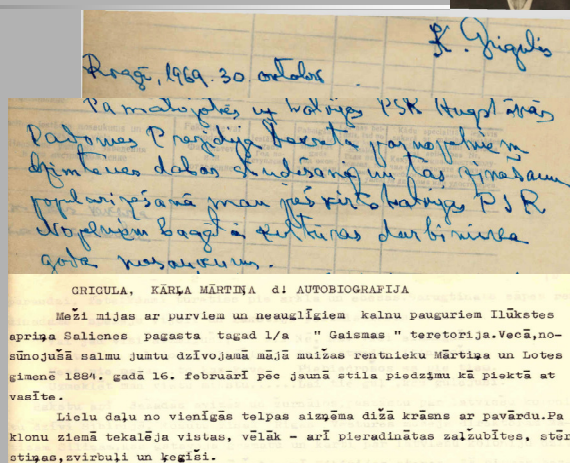 K. Grigulis
Kragi, 1969. 30. oktobr
Pamatojoties uz Latvijas PSR Augstākās
Padomes Prezidija dekrētu par nopelniem
dzimtenes dabas studēšanā un tās zināšanu
popularizēšanā man piešķirts Latvijas PSR
Nopelniem bagātā kultūras darbinieka
goda nosaukums.
GRIGULA, KĀRĻA MĀRTIŅA d: AUTOBIOGRAFIJA
Meži mijas ar purviem un neauglīgiem kalnu pauguriem Ilūkstes
apriņa Salienes pagasta tagad l/a " Gaismas " teretorija.Vecā,no-
sūnojušā salmu jumtu dzīvojamā mājā muižas rentnieku Mārtiņa un Lotes
ģimenē 1884. gadā 16. februārī pēc jaunā stila piedzimu kā piektā at
vasīte.
Lielu daļu no vienīgās telpas aizņēma dižā krāsns ar pavārdu.Pa
klonu ziemā tekalēja vistas, vēlāk - arī pieradinātas zaļzubītes, stēr
stiņas,zvirbuļi un ķegiši.